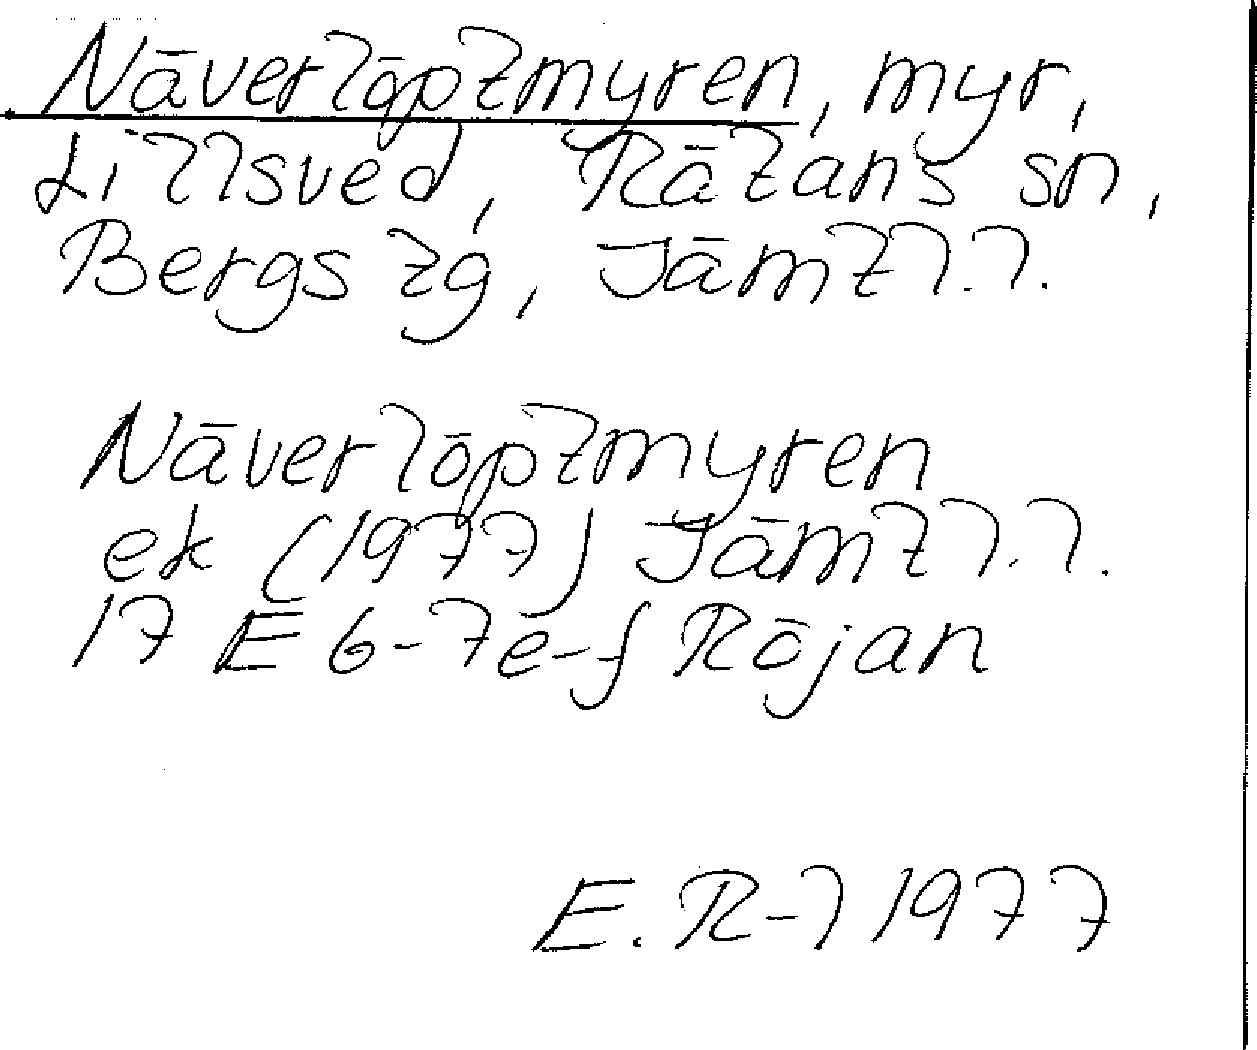 Näverlöptmyren, myr,
Lillsved, Rätans sn,
Bergs tg, Jämtl.l.
Näverlöptmyren
ek (1977) Jämtl.l.
17 E 6-7e-f Röjan
E. R-l 1977